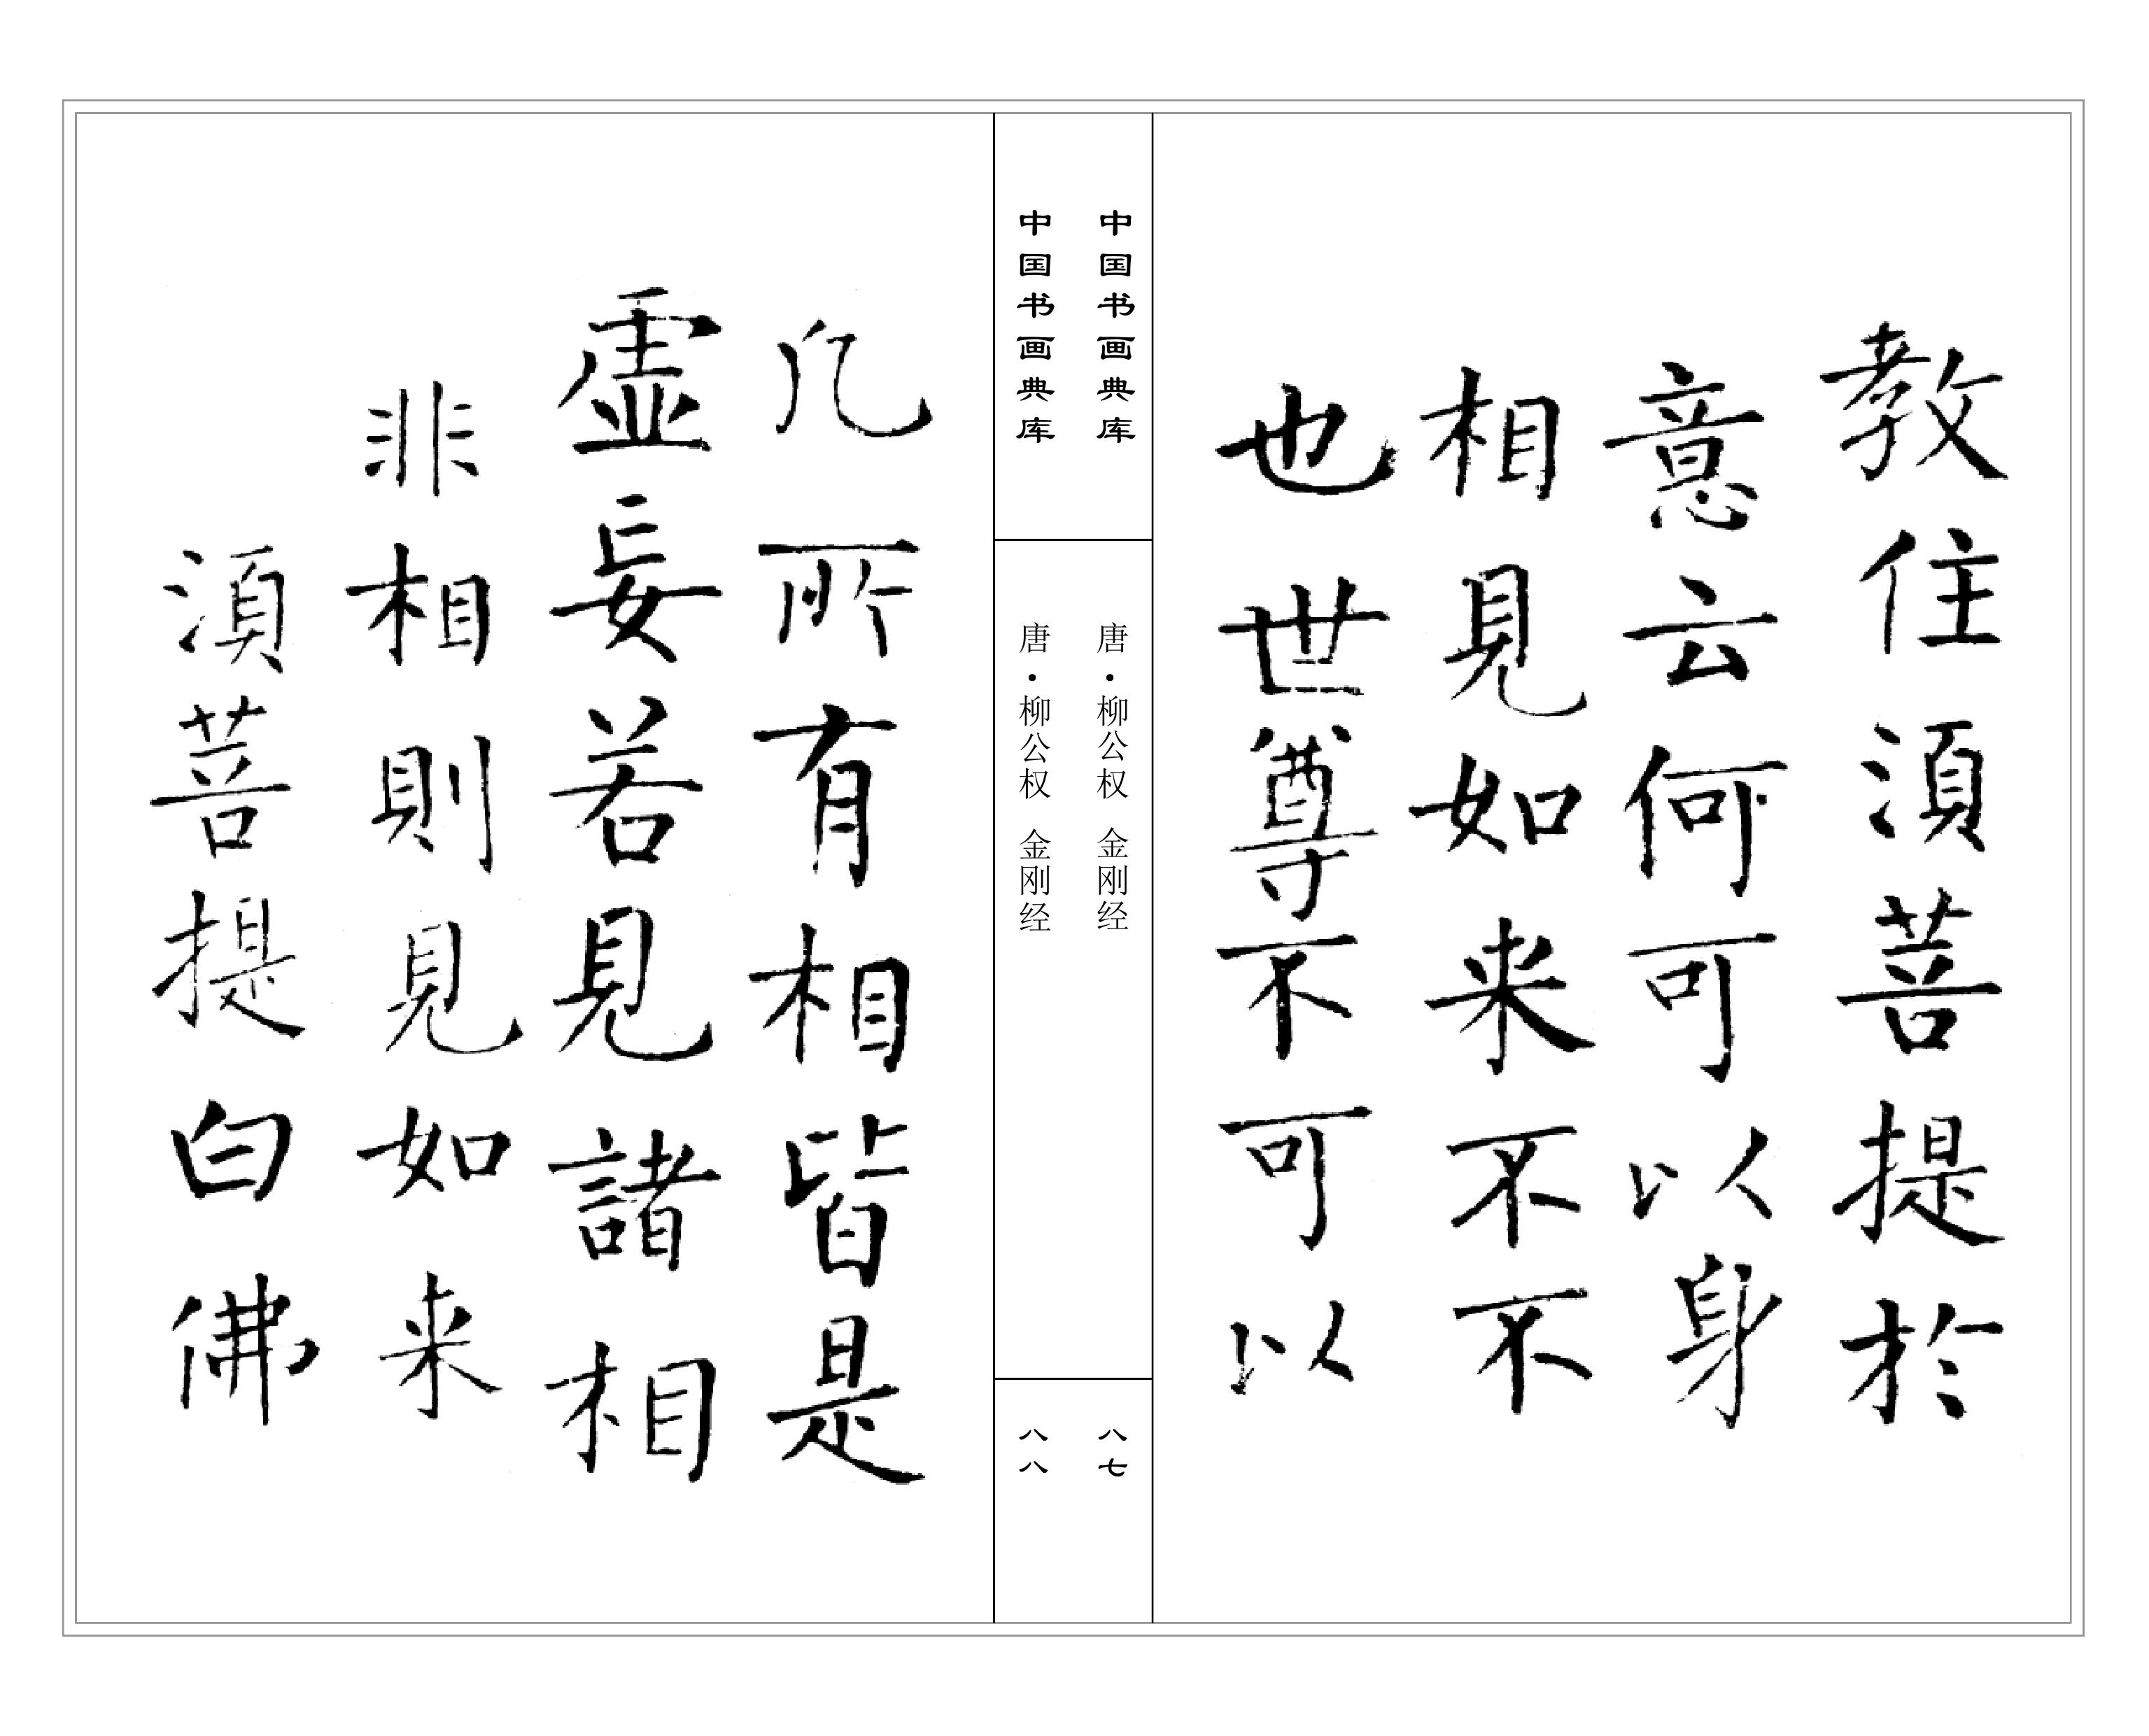 教住湏菩提於
意云何可以身
相見如来不不
也世尊不可以
中国书画典库
唐·柳公权 金刚经
八七
中国书画典库
唐·柳公权 金刚经
八八
凡所有相皆是
虚妄若見諸相
非相則見如来
湏菩提白佛